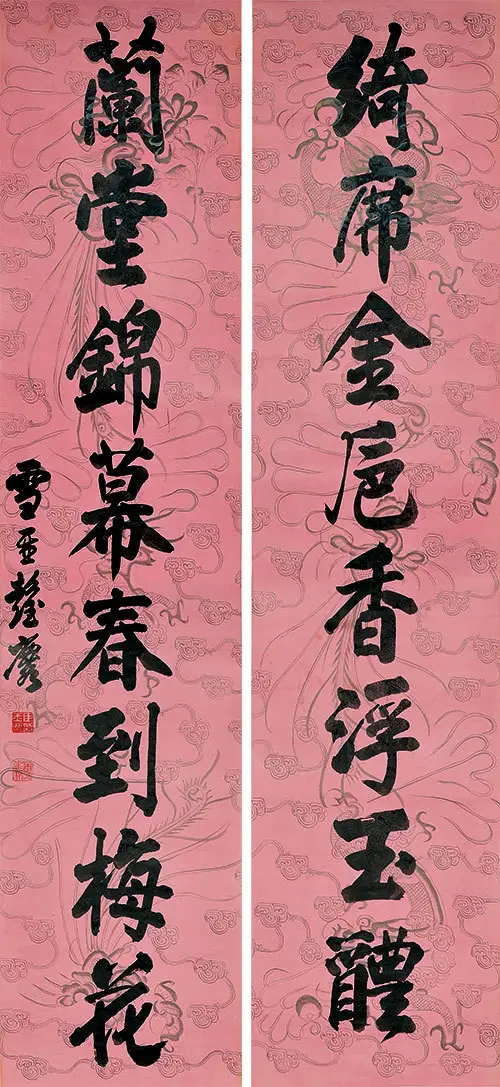 綺席金巵香浮玉醴
蘭堂錦幕春到梅花
雪